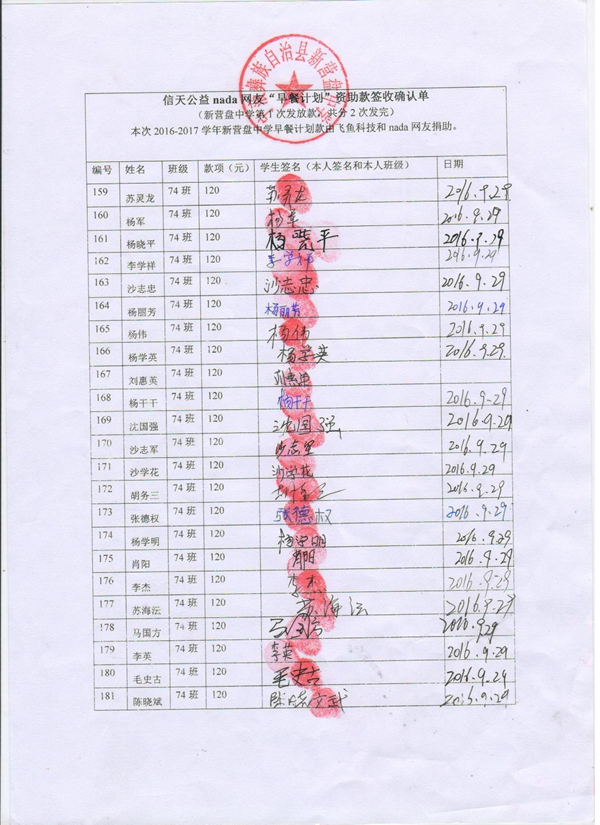 彝族自治县新营盘中
信天公益 nada 网友“早餐计划”资助款签收确认单
(新营盘中学第 1 次发放款，共分 2 次发完)
本次 2016-2017 学年新营盘中学早餐计划款由飞鱼科技和 nada 网友捐助。
编号 姓名 班级 款项（元） 学生签名（本人签名和本人班级） 日期
159 苏灵龙 74 班 120 苏灵龙 2016.9.29
160 杨军 74 班 120 杨军 2016.9.29
161 杨晓平 74 班 120 杨晓平 2016.9.29
162 李学祥 74 班 120 李学祥 2016.9.29
163 沙志忠 74 班 120 沙志忠 2016.9.29
164 杨丽芳 74 班 120 杨丽芳 2016.9.29
165 杨伟 74 班 120 杨伟 2016.9.29
166 杨学英 74 班 120 杨学英 2016.9.29.
167 刘惠英 74 班 120
168 杨干干 74 班 120 杨干干 2016.9-29
169 沈国强 74 班 120 沈国强 2016.9.29
170 沙志军 74 班 120 沙志军 2016.9.29
171 沙学花 74 班 120 沙学花 2016.9.29
172 胡务三 74 班 120 2016.9.29
173 张德权 74 班 120 张德权 2016.9.29
174 杨学明 74 班 120 杨学明 2016.9.29
175 肖阳 74 班 120 肖阳 2016.9.29
176 李杰 74 班 120 李杰 2016.9-29
177 苏海沄 74 班 120 苏海沄 2016.9.29
178 马国方 74 班 120 马国方 2016.9.29
179 李英 74 班 120 李英 2016.9.29
180 毛史古 74 班 120 毛史古 2016.9.29
181 陈晓斌 74 班 120 陈晓斌 2016.9.29